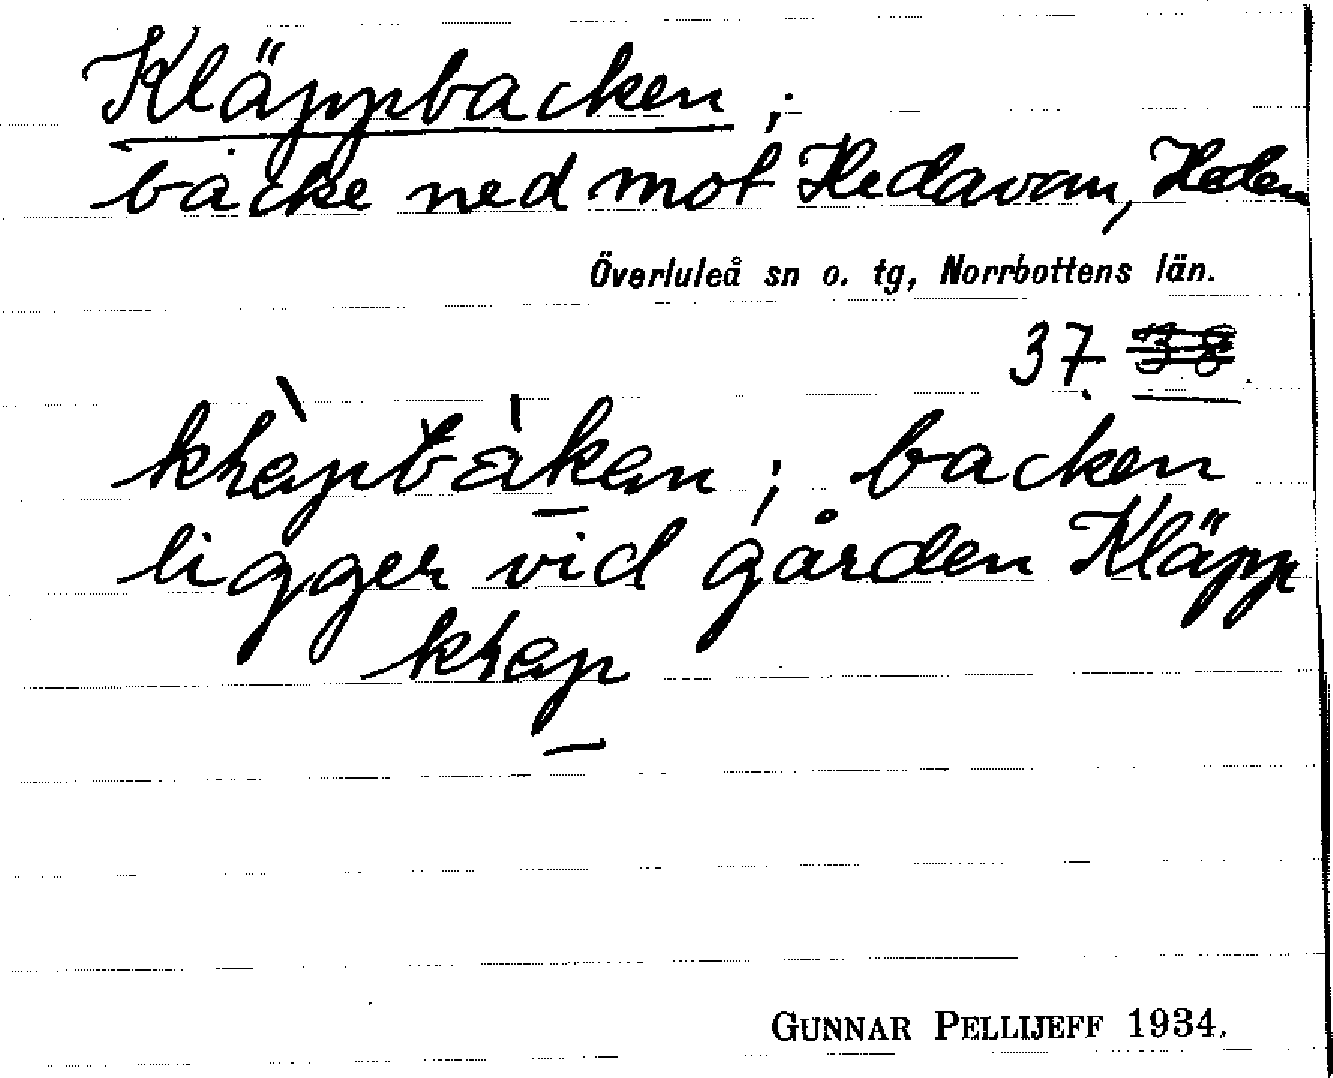 Kläppbacken;
backe ned mot Hedavan, Heden
Överluleå sn o. tg, Norrbottens län.
37
backen
ligger vid gården Kläpp
GUNNAR PELLIJEFF 1934.